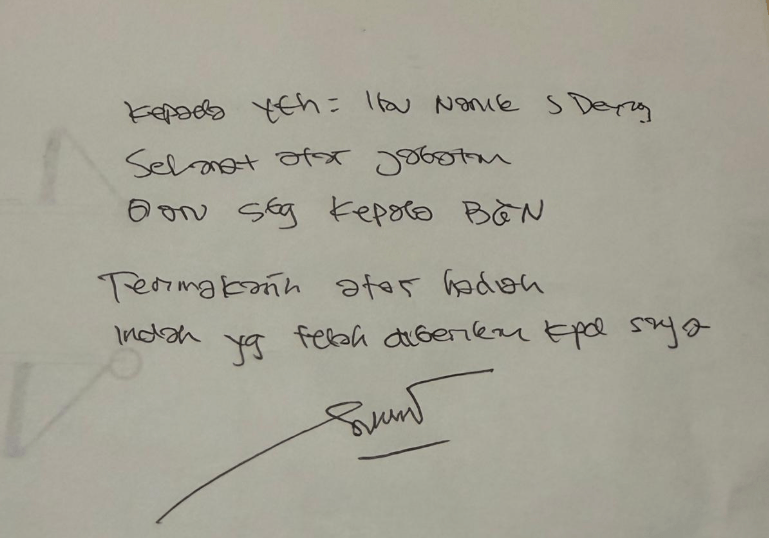 Kepada Yth = Ibu Nanik S Deyang
Selamat atas jabatan
sbg Kepala BGN
Terimakasih atas hadiah
indah yg telah diberikan kpd saya